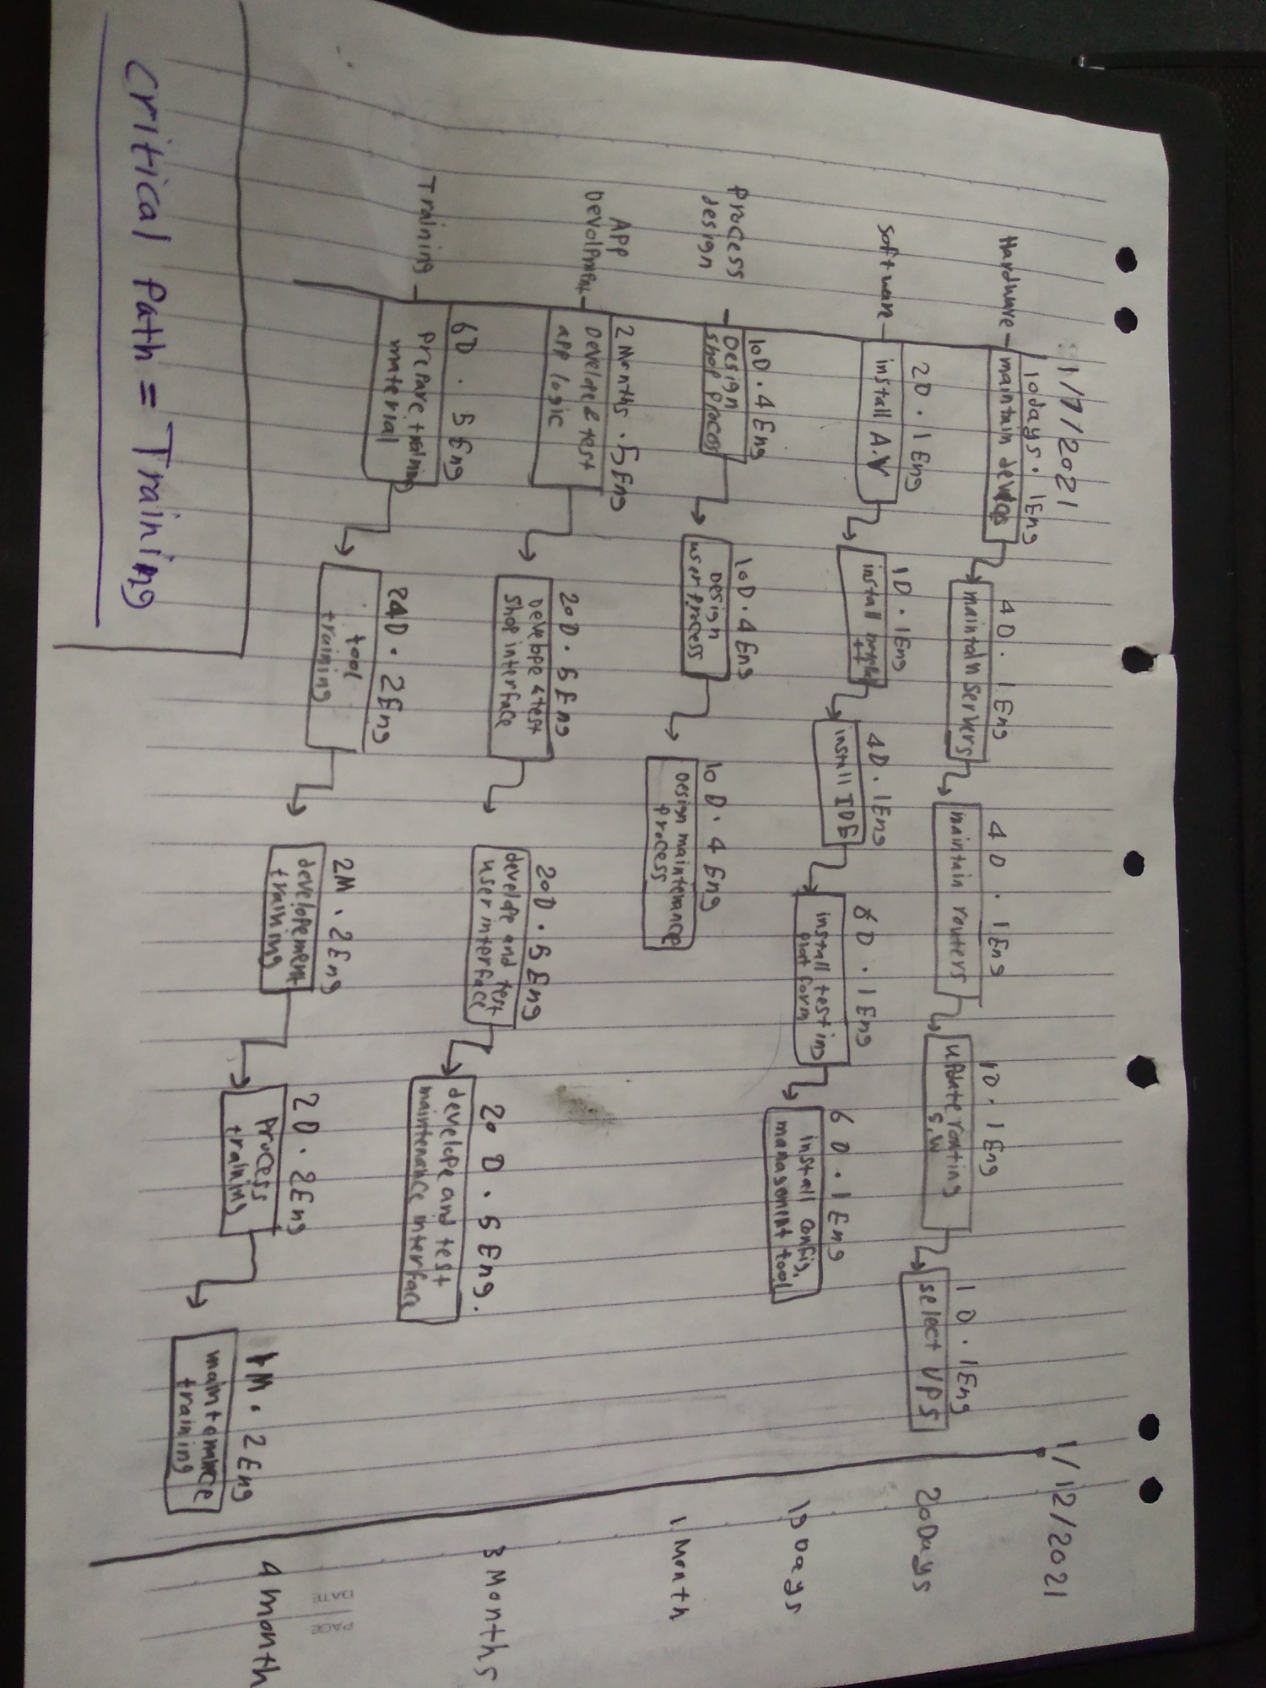 1/7/2021
1/12/2021
10days. 1Eng
Hardware
maintain devices
4D. 1Eng
maintain servers
4D. 1Eng
maintain routers
1D. 1Eng
update routing
S.W
1D. 1Eng
select UPS
20Days
2D. 1Eng
software
install A.V
1D. 1Eng
install
++
4D. 1Eng
install IDE
6D. 1Eng
install testing
platform
6D. 1Eng
install config.
management tool
19 Days
Process
design
10D. 4Eng
Design
shop process
10D. 4Eng
Design
user process
10D. 4Eng
Design maintenance
process
1 Month
APP
Devolpment
2Months. 5Eng
Develope & test
app logic
20D. 5Eng
Develope & test
shop interface
20D. 5Eng
develope and test
user interface
20D. 5Eng.
develope and test
maintenance interface
3 Months
Training
6D. 5Eng
prepare training
material
24D. 2Eng
tool
training
2M. 2Eng
developement
training
2D. 2Eng
process
training
1M. 2Eng
maintenance
training
4 month
critical path = Training
PAGE
DATE